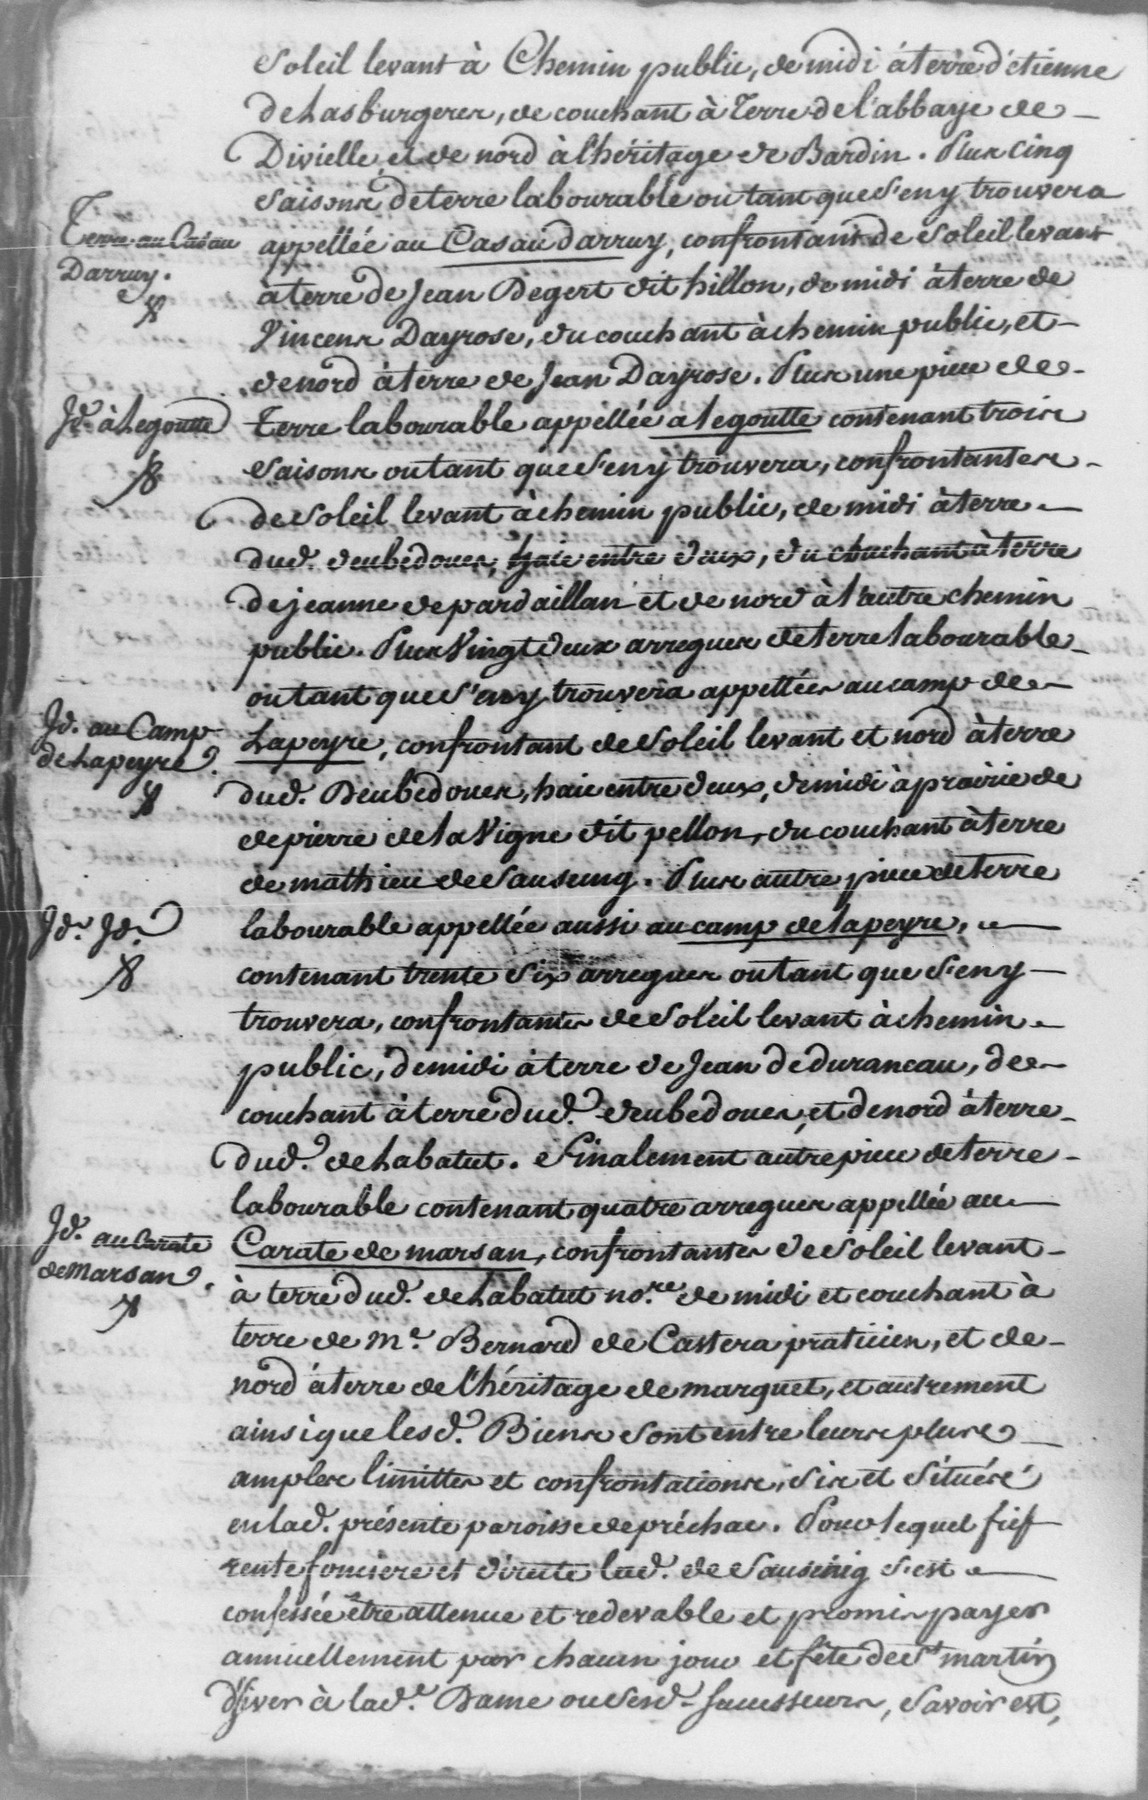 Soleil levant à Chemin public, de midi à terre d'étienne
de Lasburgerer, de couchant à Terre de l'abbaye de
Divielle et de nord à l'héritage de Bardin. Plus cinq
saisons de terre labourable ou tant que s'en y trouvera
Terre au Casau
appellée au Casau darruy, confrontant de soleil levant
Darruy.
à terre de Jean Degert dit hillon, de midi à terre de
Vincens Dayrose, du couchant à chemin public, et
de nord à terre de Jean Dayrose. Plus une piece de
Jd. à Legoutte
Terre labourable appellée a legoutte contenant trois
saisons ou tant que s'en y trouvera, confrontantes
de soleil levant à chemin public, de midi à terre
dud. deubedouer, haie entre deux, du chuchant à terre
de jeanne de pardaillan et de nord à l'autre chemin
public. Plus Vingt deux arregues de terre labourable
ou tant que s'en y trouvera appellées au camp de
Jd. au Camp
de Lapeyre.
Lapeyre, confrontant de soleil levant et nord à terre
dud. Deubedouer, haie entre deux, de midi à prairie de
de pierre de la Vigne dit pellon, du couchant à terre
de mathieu de Sausenig. Plus autre piece de terre
Jd. Jd.
labourable appellée aussi au camp de lapeyre,
contenant trente six arregues ou tant que s'en y
trouvera, confrontantes de soleil levant à chemin
public, de midi à terre de Jean de durancau, de
couchant à terre dud. deubedouer, et de nord à terre
dud. de Labatut. Finalement autre piece de terre
labourable contenant quatre arregues appellée au
Jd. au Carate
de Marsan.
Carate de marsan, confrontantes de soleil levant
à terre dud. de Labatut no.re de midi et couchant à
terre de Me. Bernard de Castera praticien, et de
nord à terre de l'héritage de marquet, et autrement
ainsi que lesd. Biens sont entre leurs plus
amples limittes et confrontations, sis et situés
en lad. présente paroisse de préchac. Pour lequel fief
rente fonciere et directe lad. de Sausenig s'est
confessée être attenue et redevable et promis payer
annuellement par chacun jour et fête de St martin
d'hiver à lad.e Dame ou sesd. successeurs, savoir est,